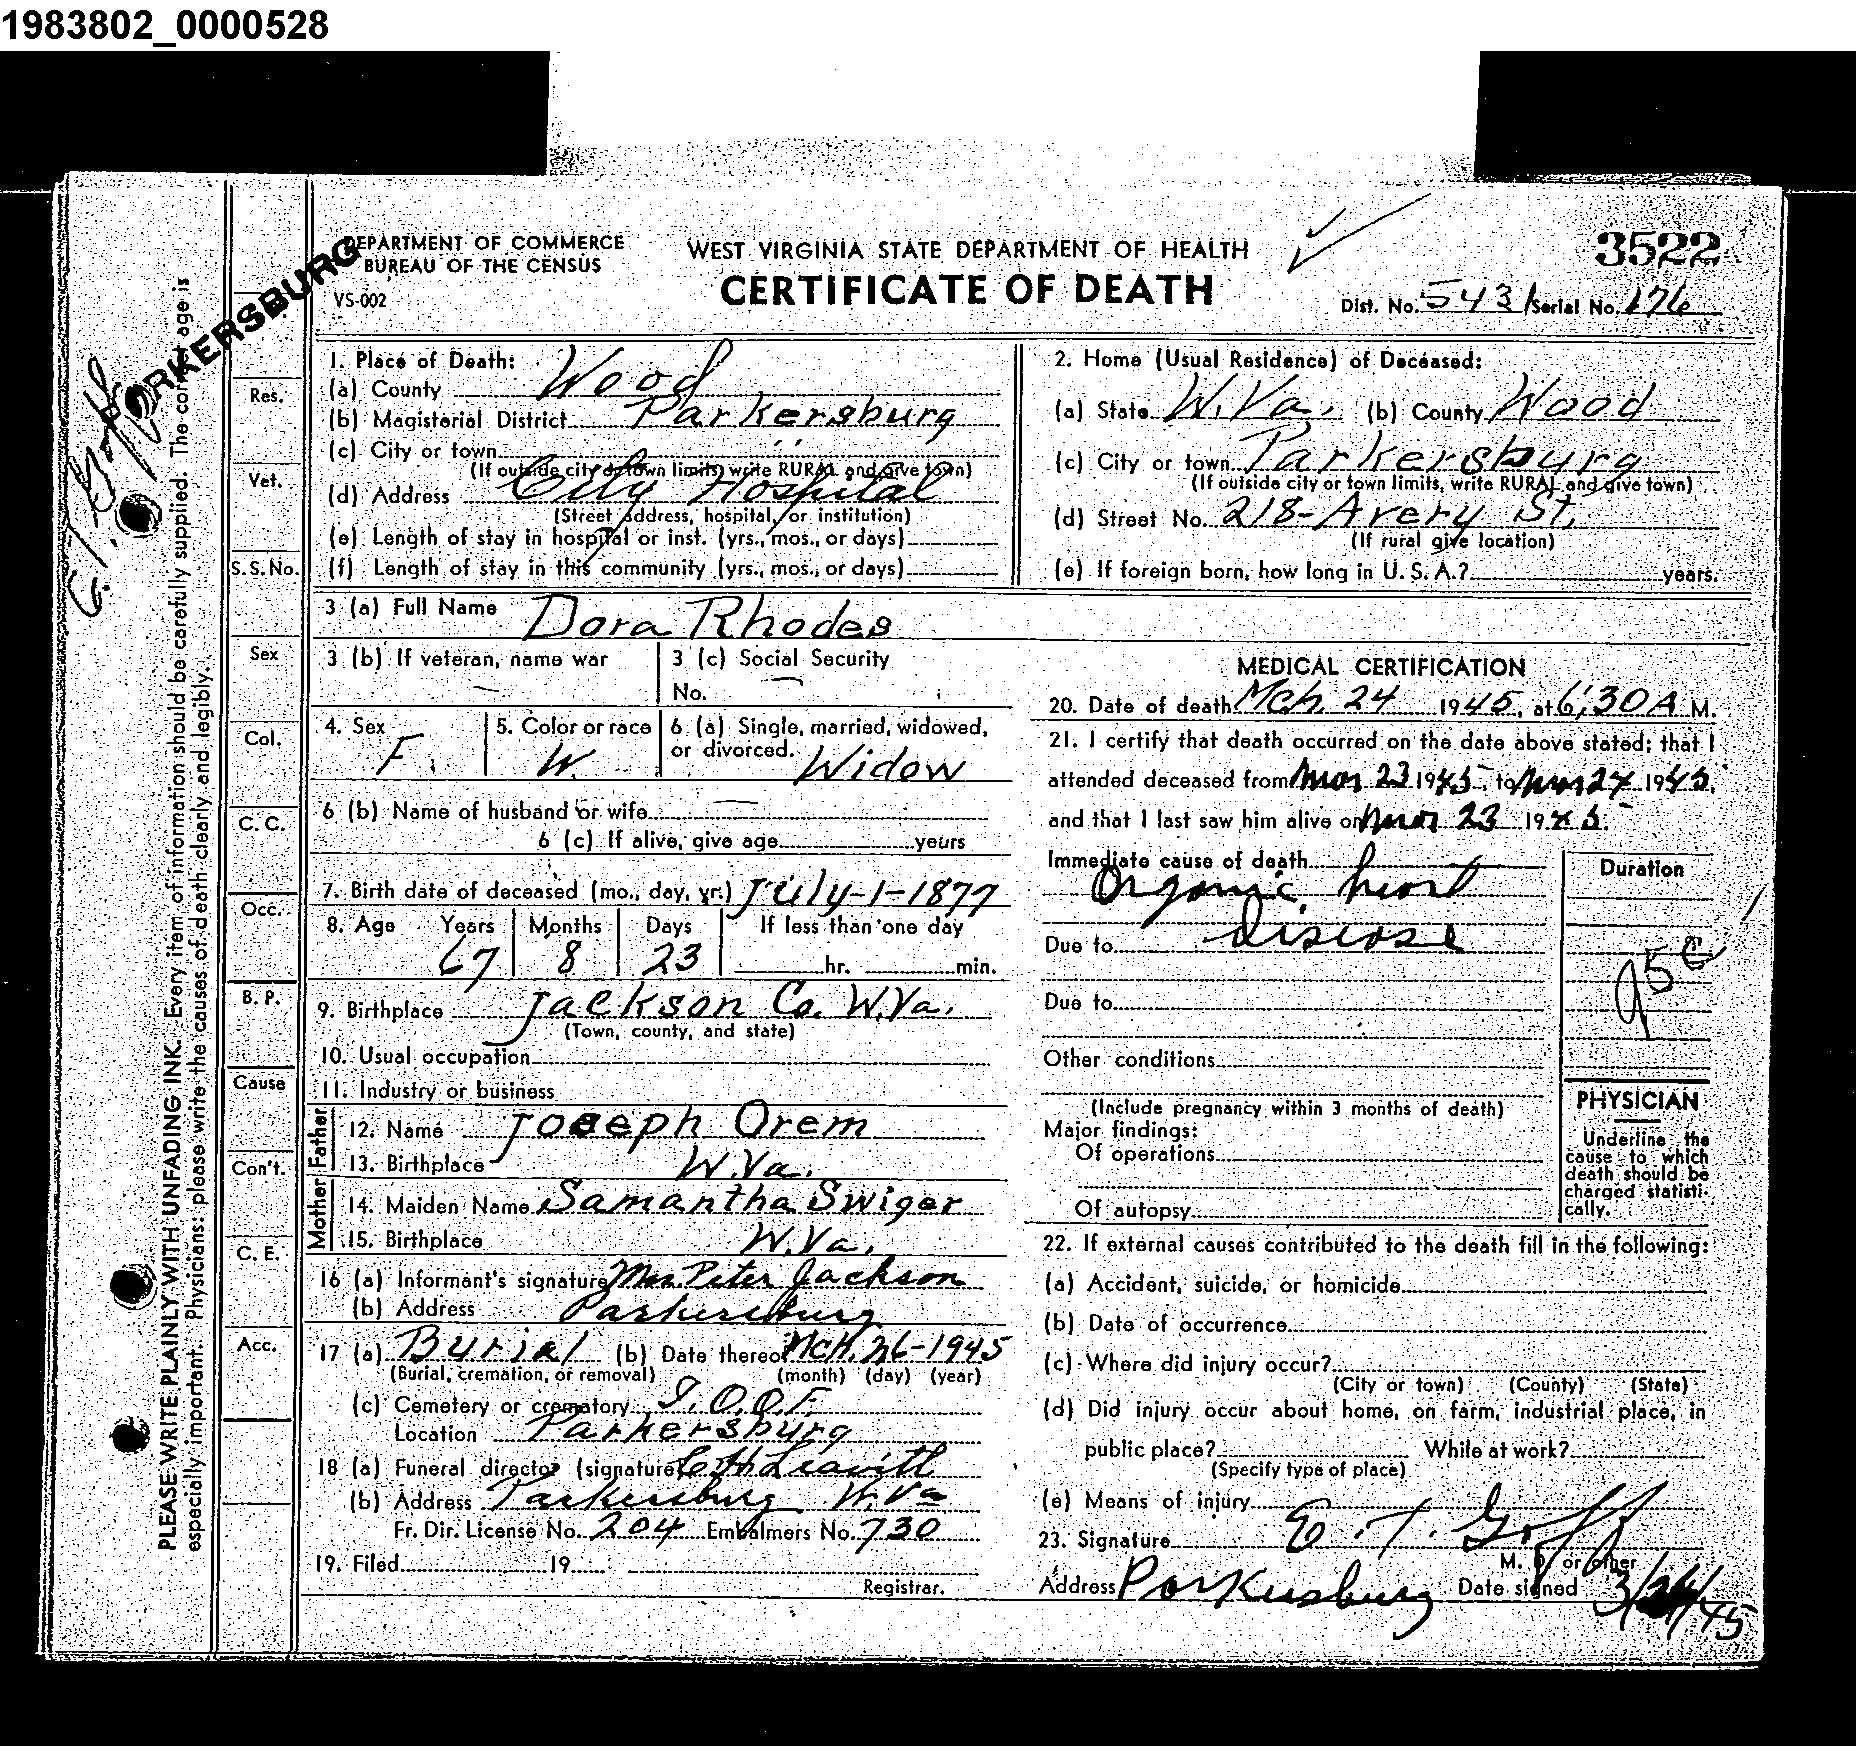 1983802_0000528
DEPARTMENT OF COMMERCE
BUREAU OF THE CENSUS
VS-002
WEST VIRGINIA STATE DEPARTMENT OF HEALTH
CERTIFICATE OF DEATH
3522
Dist. No. 5431 Serial No. 176
PARKERSBURG
E. T. Goff
PLEASE WRITE PLAINLY WITH UNFADING INK. Every item of information should be carefully supplied. The correct age is
especially important. Physicians: please write the causes of death clearly and legibly.
Res.
Vet.
S.S. No.
Sex
Col.
C. C.
Occ.
B. P.
Cause
Con't.
C. E.
Acc.
1. Place of Death:
(a) County Wood
(b) Magisterial District Parkersburg
(c) City or town " "
(If outside city or town limits, write RURAL and give town)
(d) Address City Hospital
(Street address, hospital, or institution)
(e) Length of stay in hospital or inst. (yrs., mos., or days)
(f) Length of stay in this community (yrs., mos., or days)
2. Home (Usual Residence) of Deceased:
(a) State W.Va. (b) County Wood
(c) City or town Parkersburg
(If outside city or town limits, write RURAL and give town)
(d) Street No. 218-Avery St.
(If rural give location)
(e) If foreign born, how long in U. S. A.? years.
3 (a) Full Name Dora Rhodes
3 (b) If veteran, name war —
3 (c) Social Security
No. —
4. Sex F.
5. Color or race W.
6 (a) Single, married, widowed,
or divorced. Widow
6 (b) Name of husband or wife —
6 (c) If alive, give age years
7. Birth date of deceased (mo., day, yr.) July-1-1877
8. Age Years Months Days If less than one day
67 8 23 hr. min.
9. Birthplace Jackson Co. W.Va.
(Town, county, and state)
10. Usual occupation
11. Industry or business
Father
12. Name Joseph Orem
13. Birthplace W.Va.
Mother
14. Maiden Name Samantha Swiger
15. Birthplace W.Va.
16 (a) Informant's signature Mrs. Peter Jackson
(b) Address Parkersburg
17 (a) Burial (b) Date thereof Mch. 26-1945
(Burial, cremation, or removal) (month) (day) (year)
(c) Cemetery or crematory I.O.O.F.
Location Parkersburg
18 (a) Funeral director (signature) C H Leavitt
(b) Address Parkersburg W.Va
Fr. Dir. License No. 204 Embalmers No. 730
19. Filed 19
Registrar.
MEDICAL CERTIFICATION
20. Date of death Mch. 24 1945, at 6:30 A M.
21. I certify that death occurred on the date above stated; that I
attended deceased from Mar 23 1945, to Mar 24 1945,
and that I last saw him alive on Mar 23 1945.
Immediate cause of death
Organic heart
disease
Due to
Due to
Other conditions
(Include pregnancy within 3 months of death)
Major findings:
Of operations
Of autopsy
Duration
95c
PHYSICIAN
Underline the
cause to which
death should be
charged statisti-
cally.
22. If external causes contributed to the death fill in the following:
(a) Accident, suicide, or homicide
(b) Date of occurrence
(c) Where did injury occur?
(City or town) (County) (State)
(d) Did injury occur about home, on farm, industrial place, in
public place? While at work?
(Specify type of place)
(e) Means of injury
23. Signature E. T. Goff
M. D. or other
Address Parkersburg Date signed 3/24/45